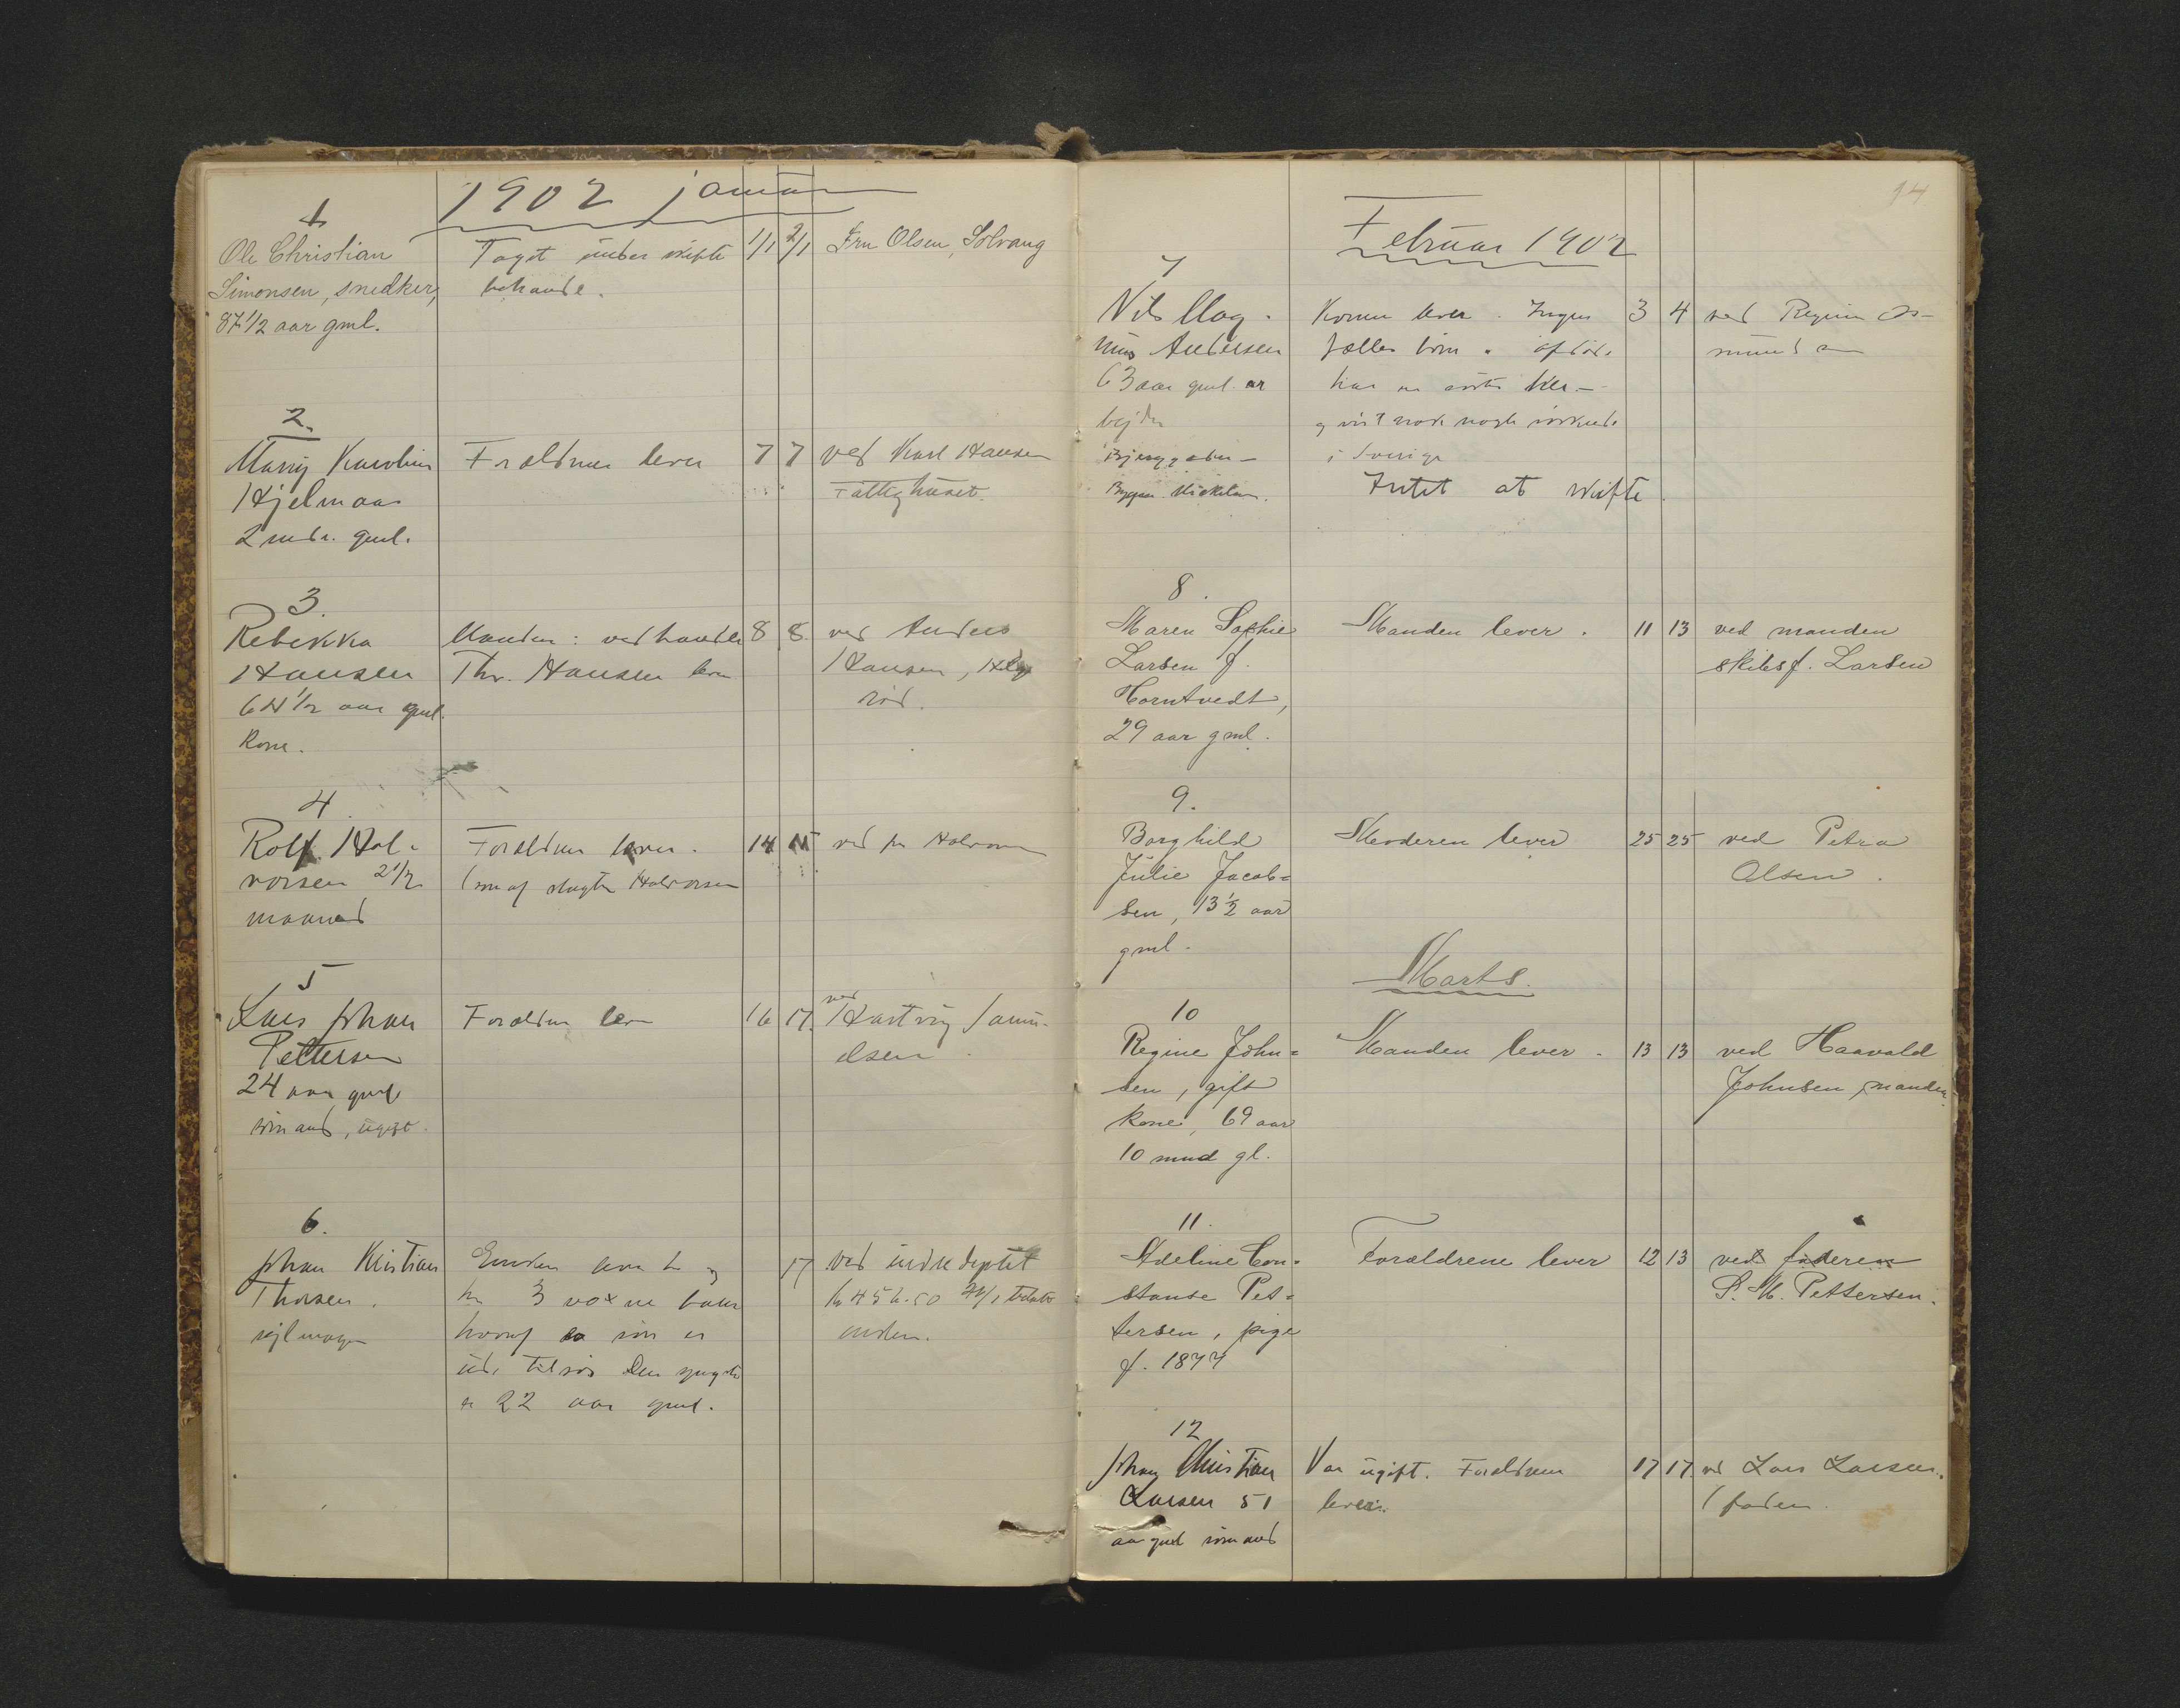 1902 januar
1
Ole Christian
Simonsen, snedker,
87 1/2 aar gml.
Taget under skifte
behandl.
1/1 2/1
Fru Olsen, Solvang
2.
Marry Karoline
Hjelmaas
2 mdr. gml.
Forældrene lever
7 7
ved Karl Hansen
Fattighuset.
3.
Rebekka
Hansen
64 1/2 aar gml.
Kone.
Manden: vedhandler
Thv. Hansen lever
8 8.
ved Anders
Hansen,
rød.
4.
Rolf Hal-
vorsen 2 1/2
maaned
Forældrene lever.
søn af slagter Halvorsen
14 15
ved fru Halvorsen
5
Lars Johan
Pettersen
24 aar gml.
sømand, ugift.
Forældrene lever
16 17.
ved
Hartvig Samu-
elsen.
6.
Johan Kristian
Thorsen.
sejlmager
Enken lever
3 voxne børn
hvoraf en søn er
ude tilsøs Den yngste
er 22 aar gml.
17
ved indre deptet
enken.
14
Februar 1902
7
Nils Mag-
nus Andersen
63 aar gml. ar
bejder
Konen lever. Ingen
fælles børn. afdøde
har en søster her
og vist nok nogle søskende
i Sverige
Intet at skifte.
3 4
ved Regine As-
mundsen
8.
Maren Sophie
Larsen f.
Horntvedt,
29 aar gml.
Manden lever.
11 13
ved manden
skibsf. Larsen
9.
Borghild
Julie Jacob=
sen, 13 1/2 aar
gml.
Moderen lever
25 25
ved Petra
Olsen.
Marts.
10
Regine John=
sen, gift
kone, 69 aar
10 mnd gl.
Manden lever.
13 13
ved Haavald
Johnsen, manden.
11.
Adeline Con=
stanse Pet=
tersen, pige
f. 1877
Forældrene lever
12 13
ved faderen
S. M. Pettersen.
12
Johan Christian
Larsen 51
aar gml sømand
Var ugift. Forældrene
lever.
17 17
ved Lars Larsen.
faderen.